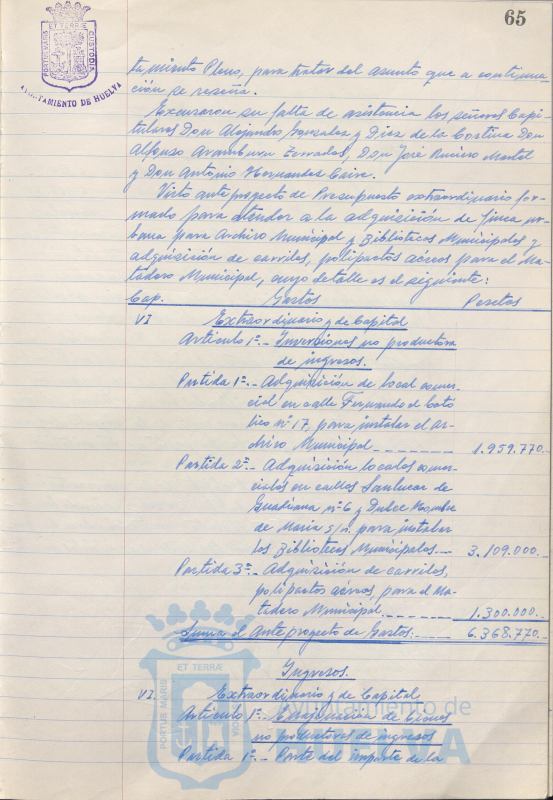 65
PORTUS MARIS ET TERRÆ CUSTODIA
AYUNTAMIENTO DE HUELVA
tamiento Pleno, para tratar del asunto que a continua
ción se reseña.
Excusaron su falta de asistencia los señores Capi-
tulares Don Alejandro Gonzalez y Diez de la Cortina Don
Alfonso Aramburu Terrades, Don José Ruciero Martel
y Don Antonio Hernandez Caire.
Visto anteproyecto de Presupuesto extraordinario for-
mado para atender a la adquisición de finca ur-
bana para Archivo Municipal y Bibliotecas Municipales y
adquisición de carriles, polipactos aéreos para el Ma-
tadero Municipal, cuyo detalle es el siguiente:
Cap. Gastos Pesetas
VI Extraordinario y de Capital
Articulo 1º.- Inversiones no productora
de ingresos.
Partida 1ª.- Adquisición de local comer-
cial en calle Fernando el Cató
lico nº 17, para instalar el Ar-
chivo Municipal 1.959.770.-
Partida 2ª.- Adquisición locales comer-
ciales en calles Sanlucar de
Guadiana nº 6 y Dulce Nombre
de Maria s/n. para instalar
las Bibliotecas Municipales. 3.109.000.-
Partida 3ª.- Adquisición de carriles,
polipactos aéreos, para el Ma-
tadero Municipal 1.300.000.-
Suma el Anteproyecto de Gastos. 6.368.770.-
Ingresos.
VI. Extraordinario y de Capital
Articulo 1º.- Enajenación de bienes
no productores de ingresos
Partida 1ª.- Parte del importe de la
PORTUS MARIS ET TERRÆ CUSTODIA
Ayuntamiento de
HUELVA